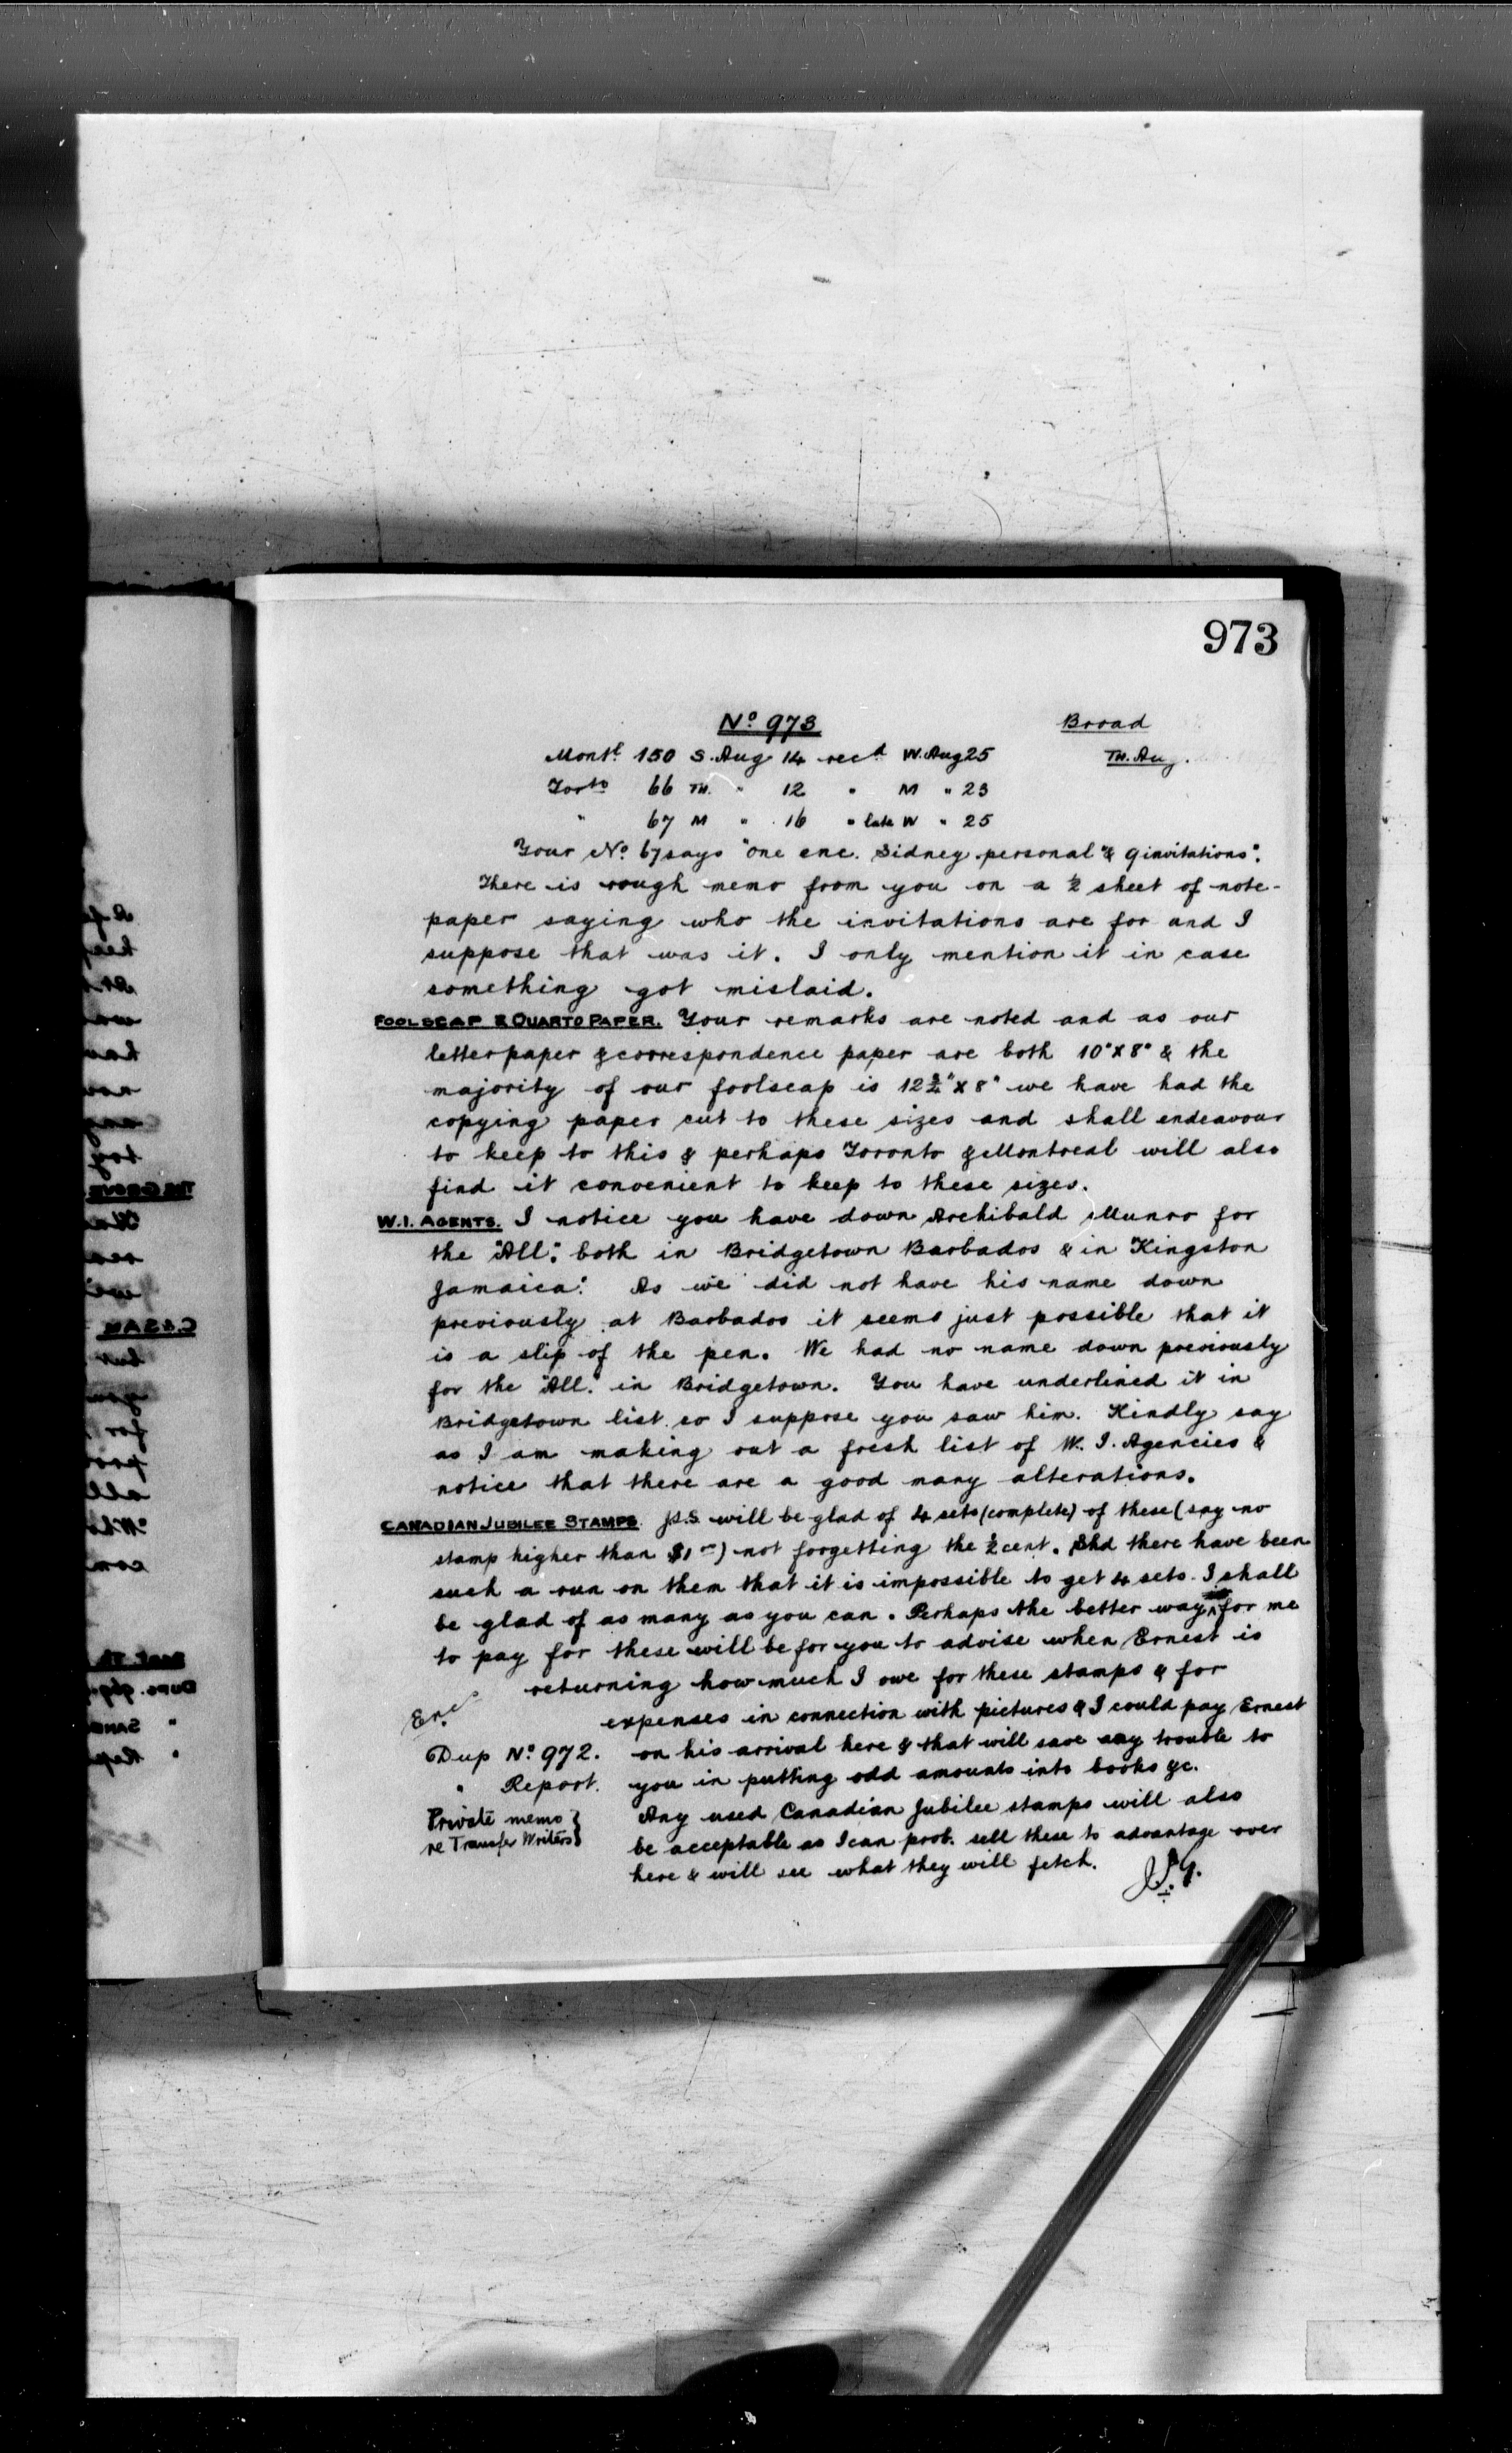 973
Nº 973 Broad
Montl 150 S. Aug 14 recd W. Aug 25 Th. Aug.
Torto 66 Th. " 12 " M " 23
" 67 M " 16 " late W " 25
Your Nº 67 says "one enc. Sidney personal" & 9 invitations".
There is rough memo from you on a ½ sheet of note-
paper saying who the invitations are for and I
suppose that was it. I only mention it in case
something got mislaid.
FOOLSCAP & QUARTO PAPER. Your remarks are noted and as our
letterpaper & correspondence paper are both 10"x8" & the
majority of our foolscap is 12¾"x8" we have had the
copying paper cut to these sizes and shall endeavour
to keep to this & perhaps Toronto & Montreal will also
find it convenient to keep to these sizes.
W.I. AGENTS. I notice you have down Archibald Munro for
the "All." both in Bridgetown Barbados & in Kingston
Jamaica. As we did not have his name down
previously at Barbados it seems just possible that it
is a slip of the pen. We had no name down previously
for the "All." in Bridgetown. You have underlined it in
Bridgetown list so I suppose you saw him. Kindly say
as I am making out a fresh list of W. I. Agencies &
notice that there are a good many alterations.
CANADIAN JUBILEE STAMPS. J.S. will be glad of 4 sets (complete) of these (say no
stamp higher than $1 —) not forgetting the ½ cent. Shd there have been
such a run on them that it is impossible to get 4 sets I shall
be glad of as many as you can. Perhaps the better way for me
to pay for these will be for you to advise when Ernest is
returning how much I owe for these stamps & for
Enc expenses in connection with pictures & I could pay Ernest
Dup Nº 972. on his arrival here & that will save any trouble to
" Report. you in putting odd amounts into books &c.
Private memo } Any used Canadian Jubilee stamps will also
re Transfer Writers } be acceptable as I can prob. sell these to advantage over
here & will see what they will fetch.